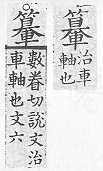 治車
軸也
數眷切說文治
車軸也文六